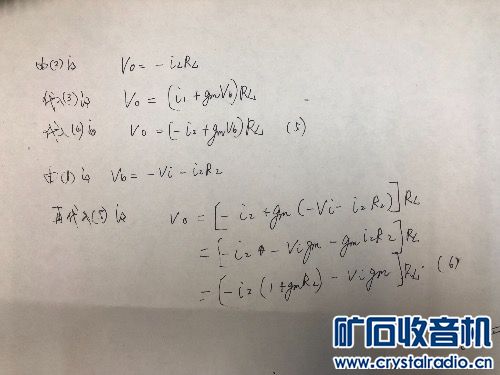 由(2)得 V₀ = -i₂R₂
代入(3)得 V₀ = (i₁ + gmV₆)R₂
代入(4)得 V₀ = [-i₂ + gmV₆)R₂ (5)
由(1)得 V₆ = -Vi - i₂R₂
再代入(5)得 V₀ = [-i₂ + gm(-Vi - i₂R₂)]R₂
= [-i₂ - Vigm - gmi₂R₂]R₂
= [-i₂(1+gmR₂) - Vigm]R₂ (6)
矿石收音机
www.crystalradio.cn